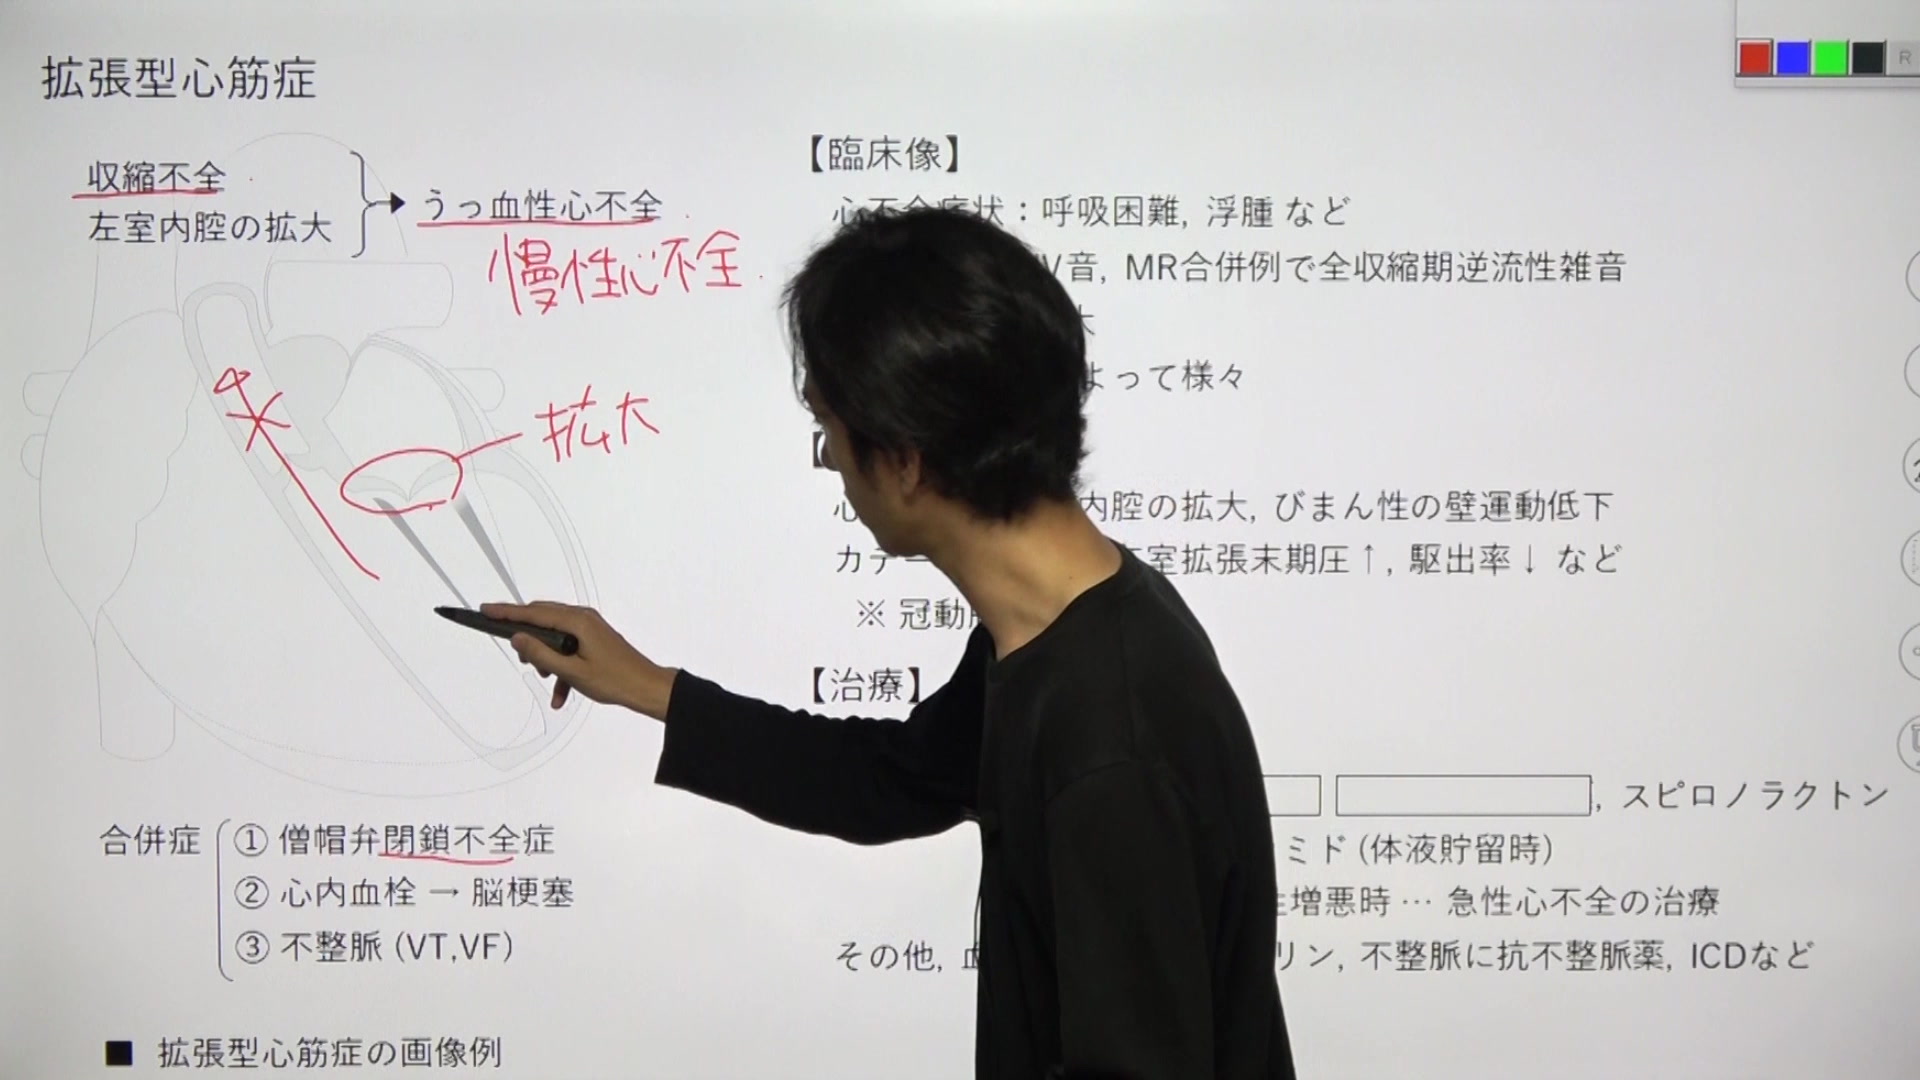 拡張型心筋症
収縮不全
左室内腔の拡大
うっ血性心不全
慢性心不全
拡大
合併症
① 僧帽弁閉鎖不全症
② 心内血栓 → 脳梗塞
③ 不整脈 (VT,VF)
■ 拡張型心筋症の画像例
【臨床像】
心不全症状：呼吸困難, 浮腫 など
音, MR合併例で全収縮期逆流性雑音
よって様々
内腔の拡大, びまん性の壁運動低下
カテ 室拡張末期圧↑, 駆出率↓ など
※ 冠動
【治療】
, スピロノラクトン
ミド (体液貯留時)
増悪時 … 急性心不全の治療
その他, リン, 不整脈に抗不整脈薬, ICDなど
R